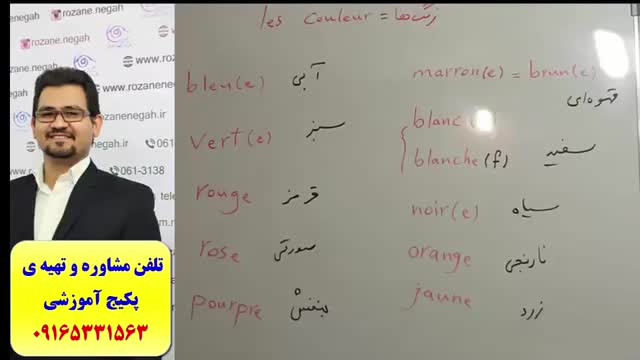 les couleur = رنگ‌ها
bleu(e) آبی
vert(e) سبز
rouge قرمز
rose صورتی
pourpre بنفش
marron(e) = brun(e) قهوه‌ای
blanc
blanche(f) سفید
noir(e) سیاه
orange نارنجی
jaune زرد
rozane.negah
www.rozanenegah.ir
061-3138
تلفن مشاوره و تهیه ی
پکیج آموزشی
۰۹۱۶۵۳۳۱۵۶۳